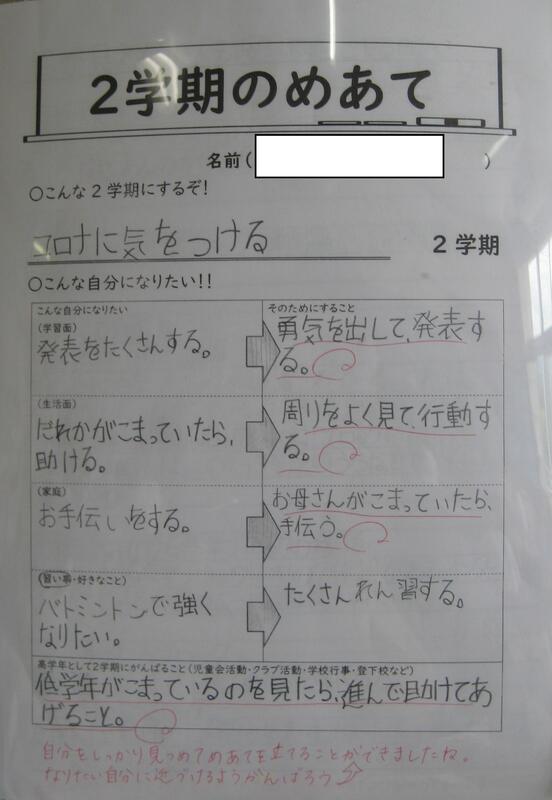 2学期のめあて
名前( )
○こんな2学期にするぞ!
コロナに気をつける 2学期
○こんな自分になりたい!!
こんな自分になりたい
(学習面)
発表をたくさんする。
そのためにすること
勇気を出して、発表す
る。
(生活面)
だれかがこまっていたら、
助ける。
周りをよく見て、行動す
る。
(家庭)
お手伝いをする。
お母さんがこまっていたら、
手伝う。
(習い事・好きなこと)
バトミントンで強く
なりたい。
たくさんれん習する。
高学年として2学期にがんばること(児童会活動・クラブ活動・学校行事・登下校など)
低学年がこまっているのを見たら、進んで助けてあ
げること。
自分をしっかり見つめてめあてを立てることができましたね。
なりたい自分に近づけるようがんばろう